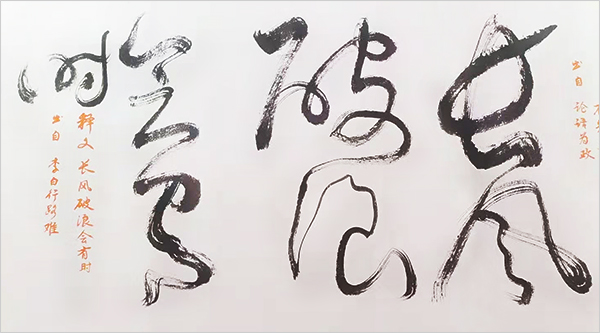 出自 论语为政
长风
破浪
会有
时
释文 长风破浪会有时
出自 李白行路难